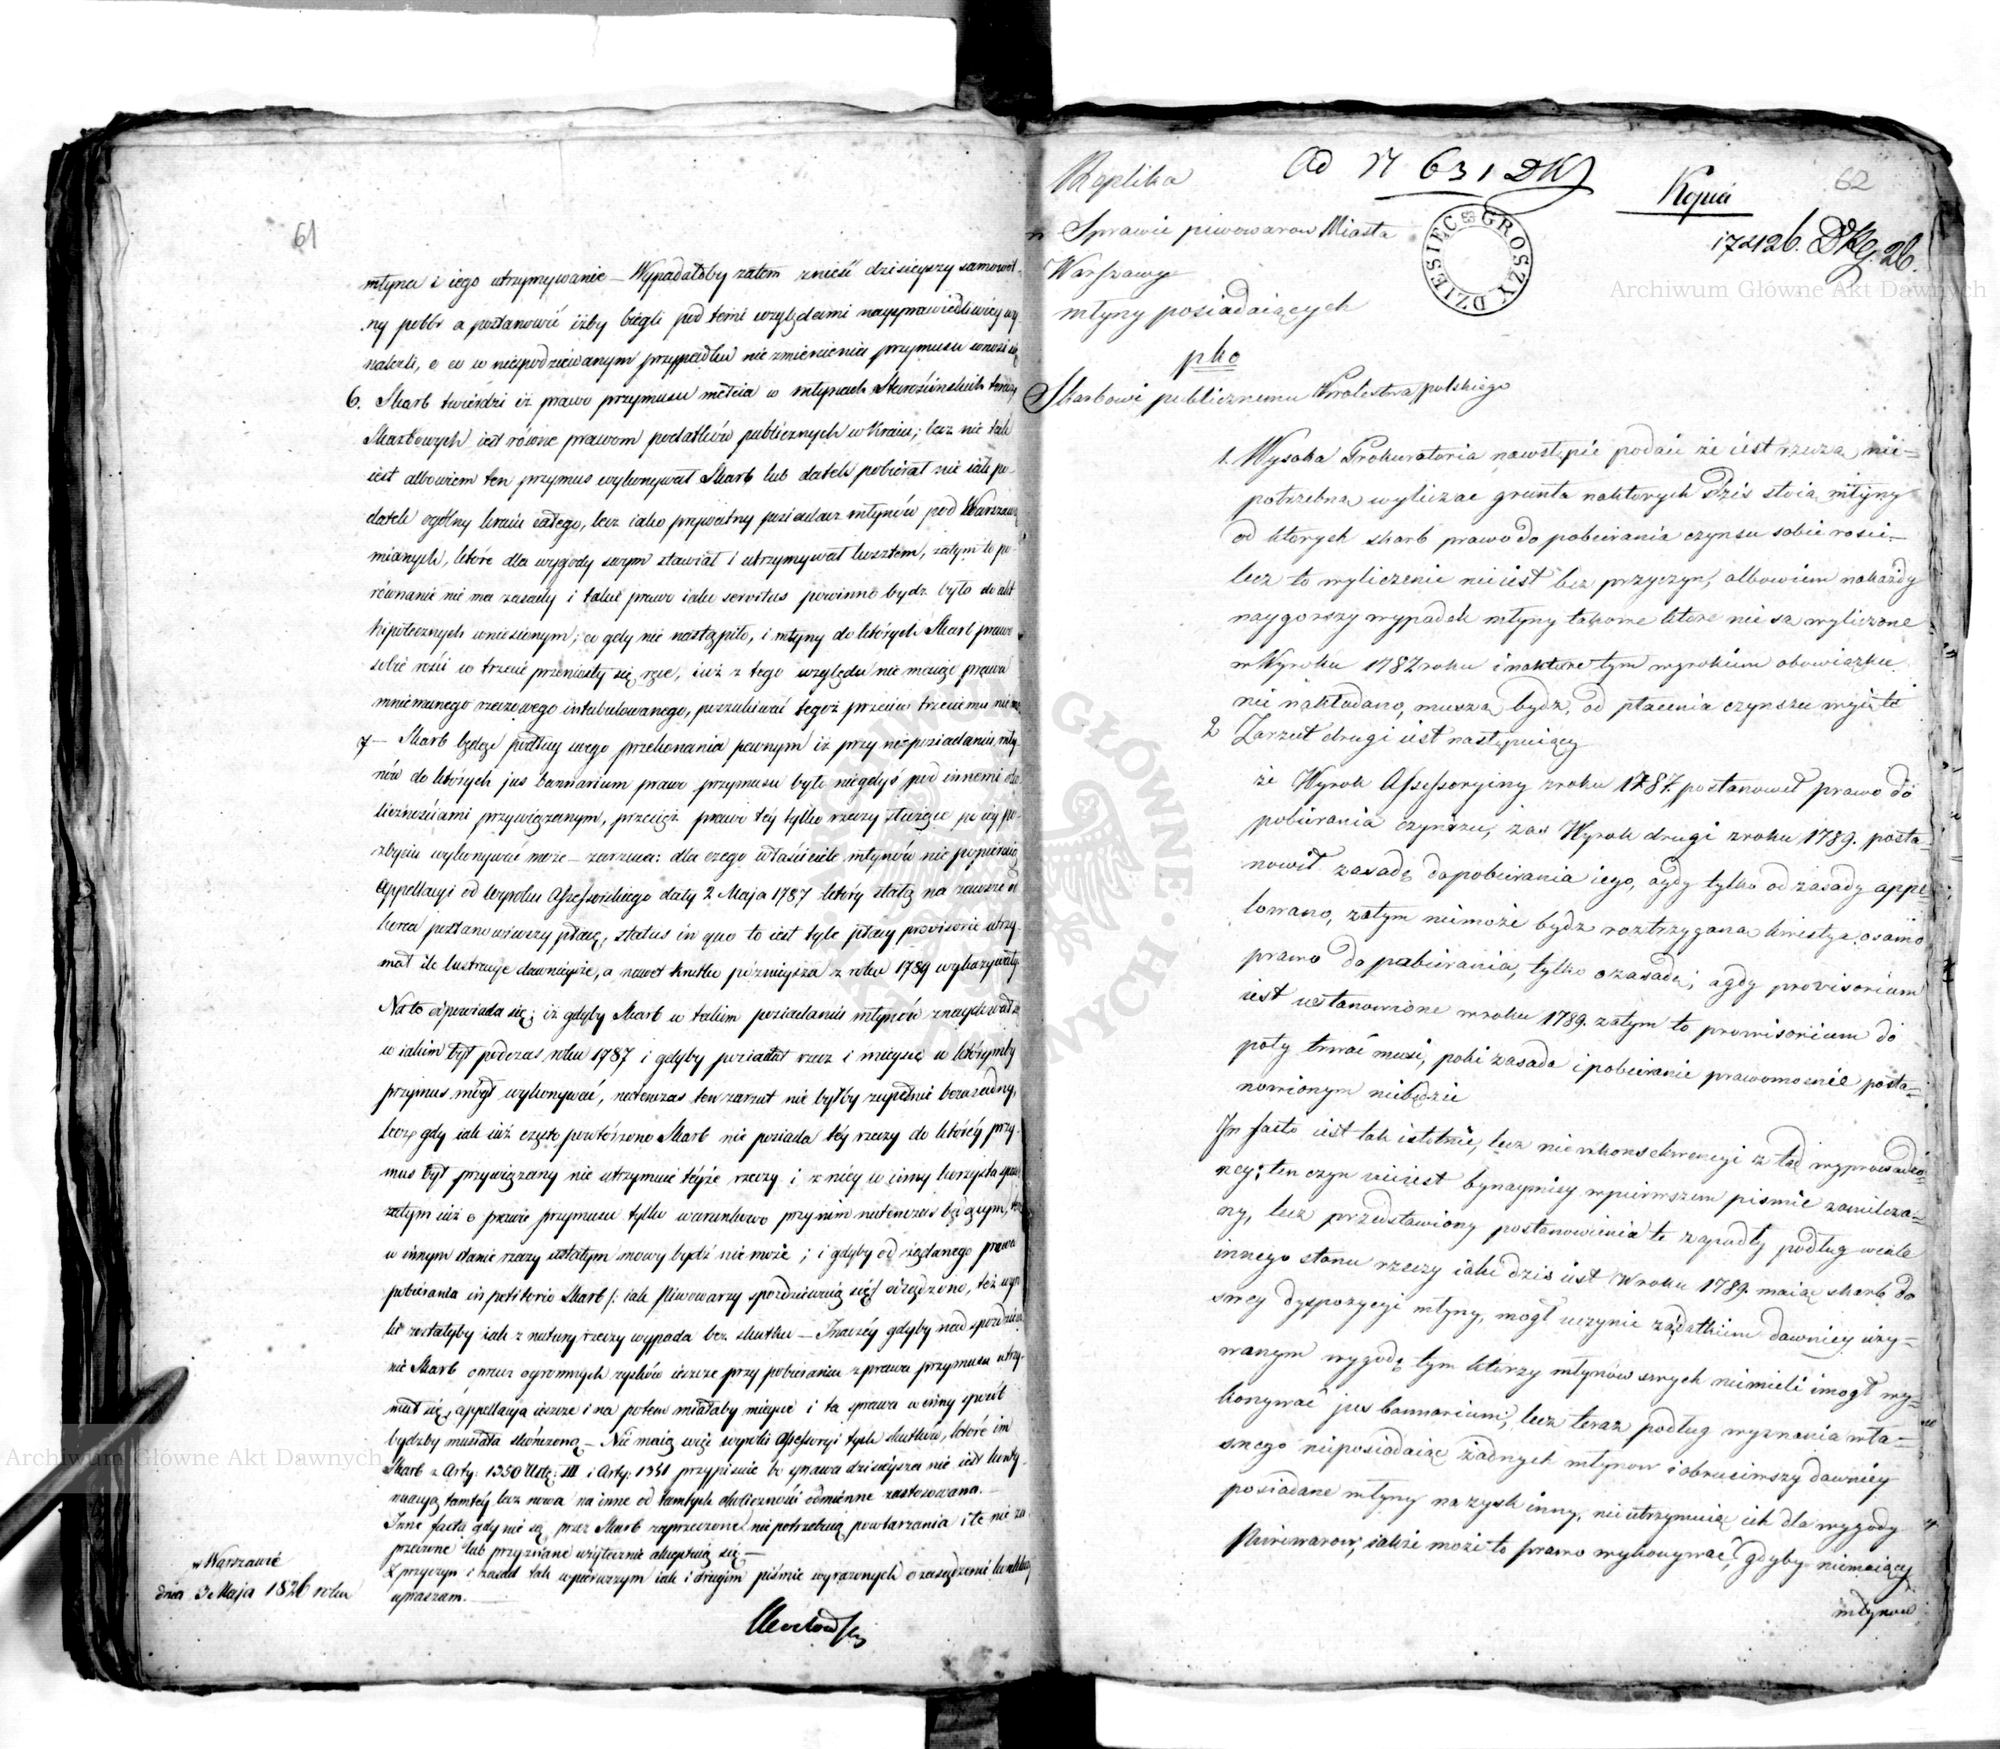 61
młyna i iego utrzymywanie – Wypadałoby zatem znieść dzisieyszy samowol-
ny pobór a postanowić iżby biegli pod temi względami naysprawiedliwiey wy
nalezli, o co w niespodziewanym przypadku nie zmienienia przymusu wnosi się
6. Skarb twierdzi iż prawo przymusu mełcia w młynach Starościńskich teraz
Skarbowych iest równe prawom podatków publicznych w Kraiu; lecz nie tak
iest albowiem ten przymus wykonywał Skarb lub datek pobierał nie iako po-
datek ogólny kraiu całego, lecz iako prywatny posiadacz młynów pod Warszawą
mianych, które dla wygody swym stawiał i utrzymywał kosztem, zatym to po-
równanie nie ma zasady i takie prawo iako servitus powinno bydz było do akt
hipotecznych wniesionym; co gdy nie nastąpiło, i młyny do których Skarb prawo
sobie rości w trzecie przeniosły się ręce, iuż z tego względu nie mogąc prawa
mniemanego rzeczowego intabulowanego, poszukiwać tegoż przeciw trzeciemu nie może
7 – Skarb będąc podług swego przekonania pewnym iż przy nieposiadaniu mły-
nów do których jus bannarium prawo przymusu było niegdyś pod innemi oko
licznościami przywiązanym, przecięż prawo téy tylko rzeczy służące po iéy po-
zbyciu wykonywać może – zarzuca: dla czego właściciele młynów nie popierają
Appellacyi od Wyroku Assessorskiego daty 2 Maja 1787 który stałą na zawsze od
korca postanowiwszy płacę, status in quo to iest tyle płacy provisorie utrzy-
mał ile lustracye dawnieysze, a nawet krótko późnieysza z roku 1789 wykazywały
Na to odpowiada się; iż gdyby Skarb w takiem posiadaniu młynów znaydował się
w iakim był podczas roku 1787 i gdyby posiadał rzecz i mieysce w którymby
przymus mógł wykonywać, natenczas ten zarzut nie byłby zupełnie bezzasadny,
Lecz gdy iak iuż często powtórzono Skarb nie posiada téy rzeczy do któréy przy-
mus był przywiązany nie utrzymuie téyże rzeczy i z niéy w inny korzysta sposób
zatym iuż o prawie przymusu tylko warunkowo przy nim natenczas będącym,
w innym stanie rzeczy ustałym mowy bydź nie może; i gdyby od żądanego prawa
pobierania in petitorio Skarb /: iak Piwowarzy spodziewaią się/ odsądzono, też wyro
ki zostałyby iak z natury rzeczy wypada bez skutku – Inaczéy gdyby nad spodziewa
nie Skarb oprocz ogromnych zysków ieszcze przy pobieraniu z prawa przymusu utrzy-
mał się, appellacya ieszcze i na potem miałaby mieysce i ta sprawa w inny sposób
bydźby musiała skończoną – Nie maią więc wyroki Assessoryi tych skutków, które im
Skarb z Arty: 1350 Ustę: III i Arty: 1351 przypisuie bo sprawa dzisieysza nie iest konty-
nuacyą tamtéy lecz nowa na inne od tamtych okoliczności odmienne zastosowana. –
Inne facta gdy nie są przez Skarb zaprzeczone nie potrzebuią powtarzania i te nie za
przeczone lub przyznane użytecznie akceptuią się –
Z przyczyn i zasad tak w pierwszym iak i drugim piśmie wyrażonych o zasądzenie
upraszam. –
w Warszawie
dnia 3 Maja 1826 roku
62
Replika
Ad N 631 DKJ
Kopia
17426. DKg. 26.
w Sprawie piwowarow Miasta
Warszawy
młyny posiadaiących
pko
Skarbowi publicznemu Krolestwa polskiego
DZIESIĘC GROSZY
1. Wysoka Prokuratoria nawstępie podaie że iest rzeczą nie=
potrzebną wyliczac grunta naktorych dzis stoią młyny
od ktorych skarb prawo do pobierania czynszu sobie rosci –
lecz to wyliczenie nieiest bez przyczyn, albowiem nakażdy
naygorszy wypadek młyny takowe ktore nie są wyliczone
w Wyroku 1787 roku i naktore tym wyrokiem obowiązku
nie nakładano, muszą bydz, od płacenia czynszu wyięte
2 Zarzut drugi iest następuiący
że Wyrok Assessoryiny zroku 1787. postanowił prawo do
pobierania czynszu, zas Wyrok drugi zroku 1789. posta-
nowił zasadę dopobierania iego, agdy tylko od zasady appe
lowano, zatym niemoże bydz roztrzygana kwestya osamo
prawo do pobierania, tylko ozasadę; agdy provisorium
iest ustanowione wroku 1789. zatym to prowisorium do
poty trwać musi, poki zasada ipobieranie prawomocnie posta=
nowionym niebędzie
In facto iest tak istotnie, lecz nie wkonsekwencyi z tąd wyprowadzo
ney; ten czyn nieiest bynaymniey wpierwszem pismie zamilcza=
ny, lecz przedstawiony postanowienia te zapadły podług wcale
innego stanu rzeczy iaki dzis iest W roku 1789. maiąc skarb do
swey dyspozycyi młyny, mogł uczynic zadatkiem dawniey uży=
wanym wygodę tym ktorzy młynów swych niemieli imogł wy=
konywać jus bannarium, lecz teraz podług wyznania wła=
snego nieposiadaiąc żadnych młynow i obrociwszy dawniey
posiadane młyny na zysk inny, nie utrzymuiąc ich dla wygody
Piwowarow, iakże może to prawo wykonywać, gdyby niemaiący
młynow
Archiwum Główne Akt Dawnych
Archiwum Główne Akt Dawnych